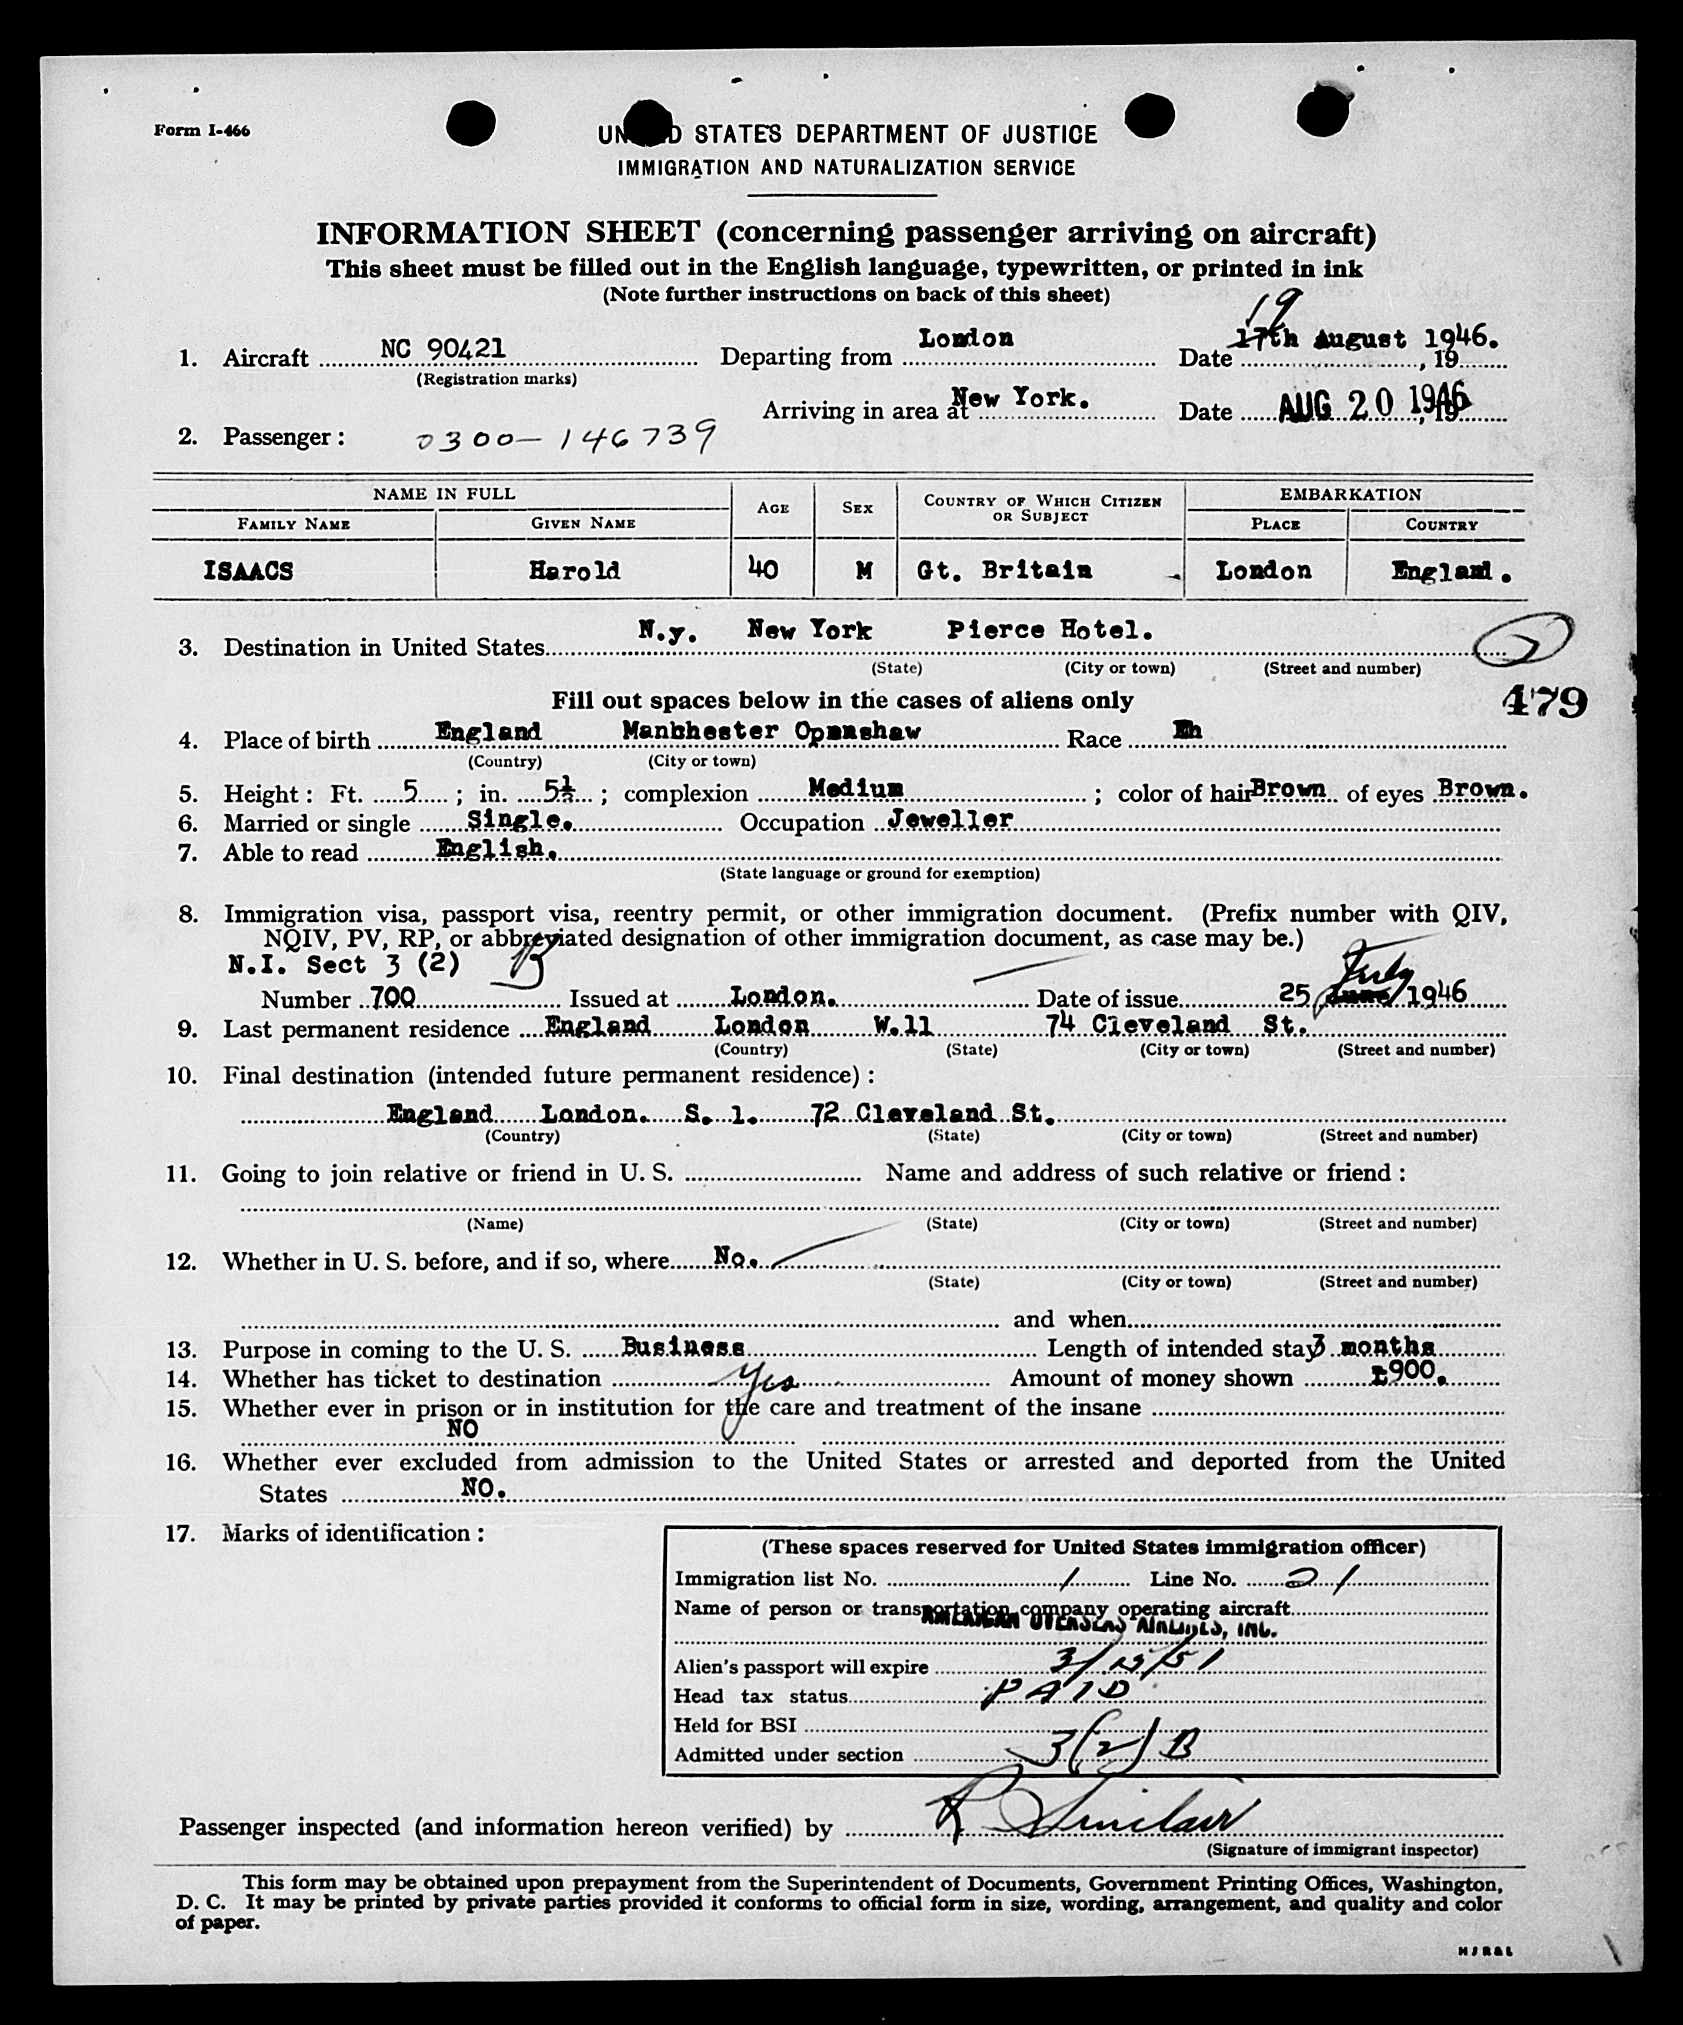 Form I-466
UN D STATES DEPARTMENT OF JUSTICE
IMMIGRATION AND NATURALIZATION SERVICE
INFORMATION SHEET (concerning passenger arriving on aircraft)
This sheet must be filled out in the English language, typewritten, or printed in ink
(Note further instructions on back of this sheet)
19
1. Aircraft NC 90421 Departing from London Date 17th August 1946. , 19
(Registration marks)
Arriving in area at New York. Date AUG 20 1946 , 19
2. Passenger: 0300-146739
NAME IN FULL AGE SEX COUNTRY OF WHICH CITIZEN OR SUBJECT EMBARKATION
FAMILY NAME GIVEN NAME PLACE COUNTRY
ISAACS Harold 40 M Gt. Britain London England.
3. Destination in United States N.y. New York Pierce Hotel. 2
(State) (City or town) (Street and number)
479
Fill out spaces below in the cases of aliens only
4. Place of birth England Manbhester Opanshaw Race Eh
(Country) (City or town)
5. Height: Ft. 5 ; in. 5½ ; complexion Medium ; color of hair Brown of eyes Brown.
6. Married or single Single. Occupation Jeweller
7. Able to read English.
(State language or ground for exemption)
8. Immigration visa, passport visa, reentry permit, or other immigration document. (Prefix number with QIV,
NQIV, PV, RP, or abbreviated designation of other immigration document, as case may be.)
N.I. Sect 3 (2) B
July
Number 700 Issued at London. Date of issue 25 June 1946
9. Last permanent residence England London W.11 74 Cleveland St.
(Country) (State) (City or town) (Street and number)
10. Final destination (intended future permanent residence):
England London. S. 1. 72 Cleveland St.
(Country) (State) (City or town) (Street and number)
11. Going to join relative or friend in U. S. Name and address of such relative or friend:
(Name) (State) (City or town) (Street and number)
12. Whether in U. S. before, and if so, where No.
(State) (City or town) (Street and number)
and when
13. Purpose in coming to the U. S. Business Length of intended stay 3 months
14. Whether has ticket to destination Yes Amount of money shown £900.
15. Whether ever in prison or in institution for the care and treatment of the insane
NO
16. Whether ever excluded from admission to the United States or arrested and deported from the United
States NO.
17. Marks of identification:
(These spaces reserved for United States immigration officer)
Immigration list No. 1 Line No. 21
Name of person or transportation company operating aircraft
AMERICAN OVERSEAS AIRLINES, INC.
Alien's passport will expire 3/15/51
Head tax status PAID
Held for BSI
Admitted under section 3(2)B
Passenger inspected (and information hereon verified) by R Sinclair
(Signature of immigrant inspector)
This form may be obtained upon prepayment from the Superintendent of Documents, Government Printing Offices, Washington,
D. C. It may be printed by private parties provided it conforms to official form in size, wording, arrangement, and quality and color
of paper.